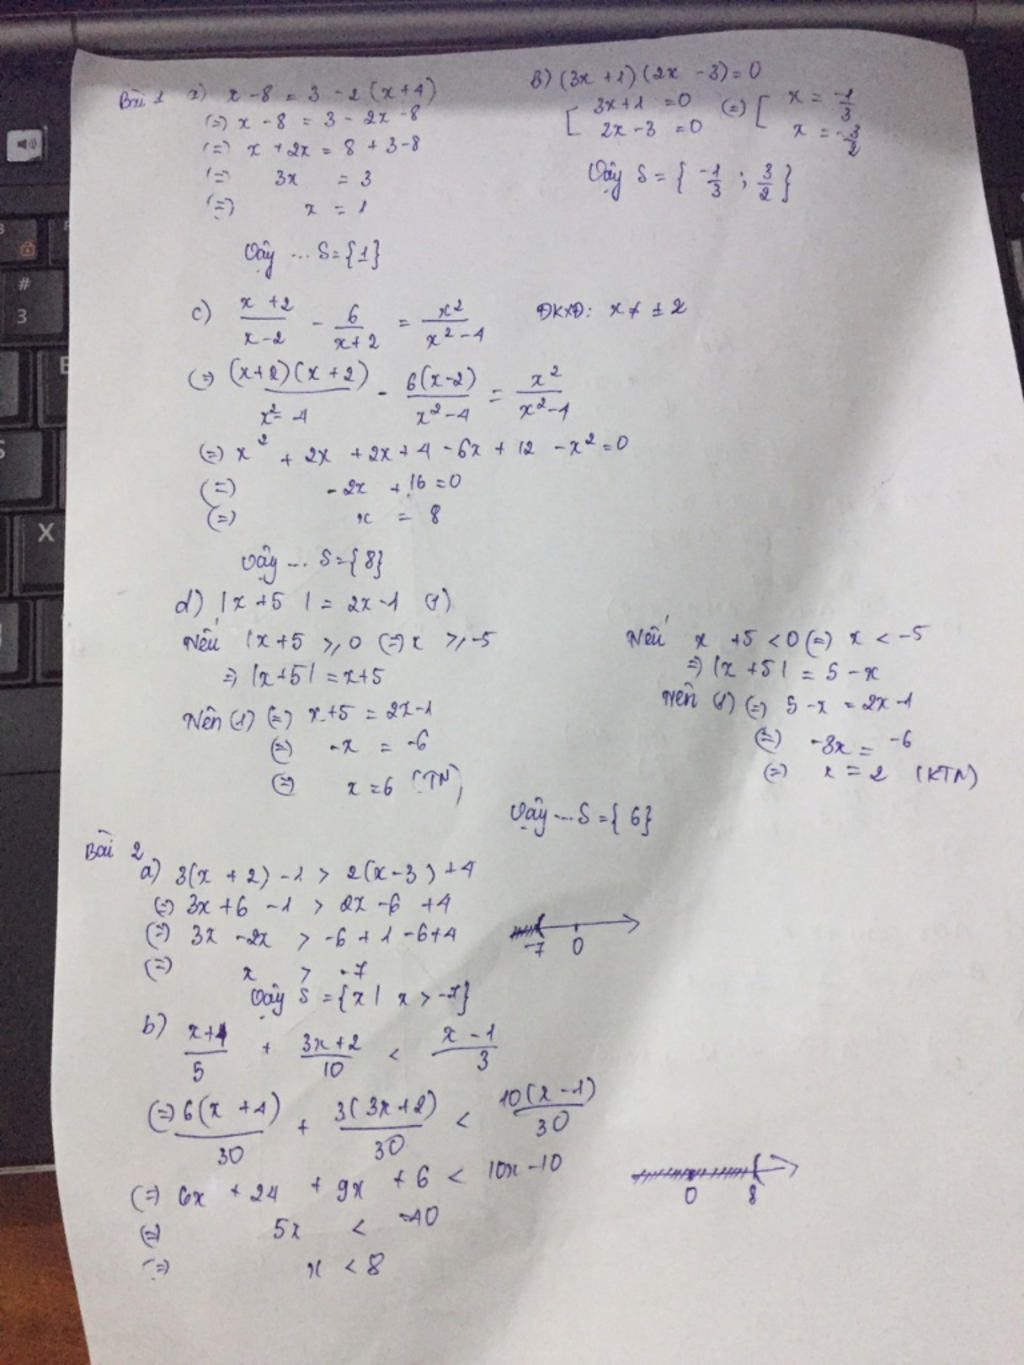 Bài 1 a) x - 8 = 3 - 2(x+4)
(=) x - 8 = 3 - 2x - 8
(=) x + 2x = 8 + 3 - 8
(=) 3x = 3
(=) x = 1
Vậy ... S = {1}
b) (3x + 1)(2x - 3) = 0
[ 3x+1 = 0 (=) [ x = -1/3
2x - 3 = 0 x = 3/2
Vậy S = { -1/3 ; 3/2 }
c) x+2/x-2 - 6/x+2 = x²/x²-4 ĐKXĐ: x ≠ ± 2
(=) (x+2)(x+2)/x²-4 - 6(x-2)/x²-4 = x²/x²-4
(=) x² + 2x + 2x + 4 - 6x + 12 - x² = 0
(=) -2x + 16 = 0
(=) x = 8
Vậy ... S = {8}
d) |x + 5| = 2x - 1 (1)
Nếu |x + 5 ≥ 0 (=) x ≥ -5
=> |x+5| = x+5
Nên (1) (=) x+5 = 2x-1
(=) -x = -6
(=) x = 6 (TN)
Nếu x + 5 < 0 (=) x < -5
=> |x + 5| = 5 - x
Nên (1) (=) 5 - x = 2x - 1
(=) -3x = -6
(=) x = 2 (KTN)
Vậy ... S = {6}
Bài 2
a) 3(x + 2) - 1 > 2(x - 3) + 4
(=) 3x + 6 - 1 > 2x - 6 + 4
(=) 3x - 2x > -6 + 1 - 6 + 4
(=) x > -7
Vậy S = {x | x > -7}
-7 0
b) x+4/5 + 3x+2/10 < x-1/3
(=) 6(x + 4)/30 + 3(3x+2)/30 < 10(x-1)/30
(=) 6x + 24 + 9x + 6 < 10x - 10
(=) 5x < -40
(=) x < 8
0 8